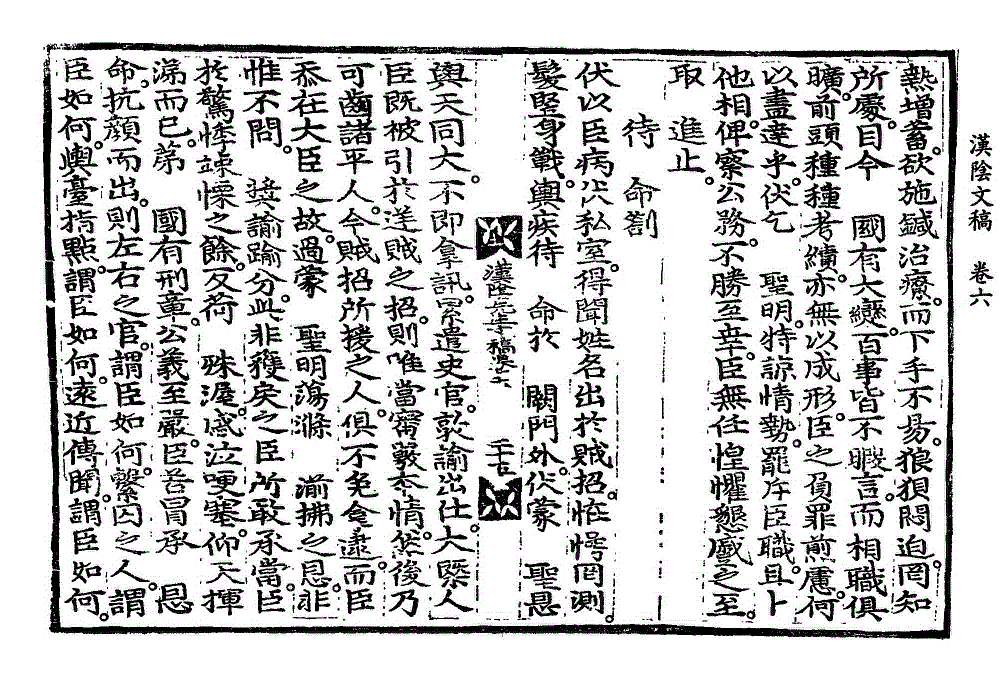 漢陰文稿 卷六
熱增蓄。欲施鍼治療。而下手不易。狼狽悶迫。罔知
所處。目今 國有大變。百事皆不暇言。而相職俱
曠。前頭種種考績。亦無以成形。臣之負罪煎慮。何
以盡達乎。伏乞 聖明。特諒情勢。罷斥臣職。且卜
他相。俾察公務。不勝至幸。臣無任惶懼懇蹙之至。
取 進止。
待 命劄
伏以臣病伏私室。得聞姓名出於賊招。恠愕罔測。
髮竪身戰。輿疾待 命於 闕門外。伏蒙 聖恩
漢陰先生文稿卷之六
輿天同大。不卽拿訊。累遣史官。敦諭出仕。大槩人
臣旣被引於逆賊之招。則唯當窮覈本情。然後乃
可齒諸平人。今賊招所援之人。俱不免逮。而臣
忝在大臣之故。過蒙 聖明蕩滌 湔拂之恩。非
惟不問。 奬諭踰分。此非獲戾之臣所敢承當。臣
於驚悸竦慄之餘。反荷 殊渥。感泣哽塞。仰天揮
涕而已。第 國有刑章。公義至嚴。臣若冒承 恩
命。抗顔而出。則左右之官。謂臣如何。繫囚之人。謂
臣如何。輿臺指點。謂臣如何。遠近傳聞。謂臣如何。